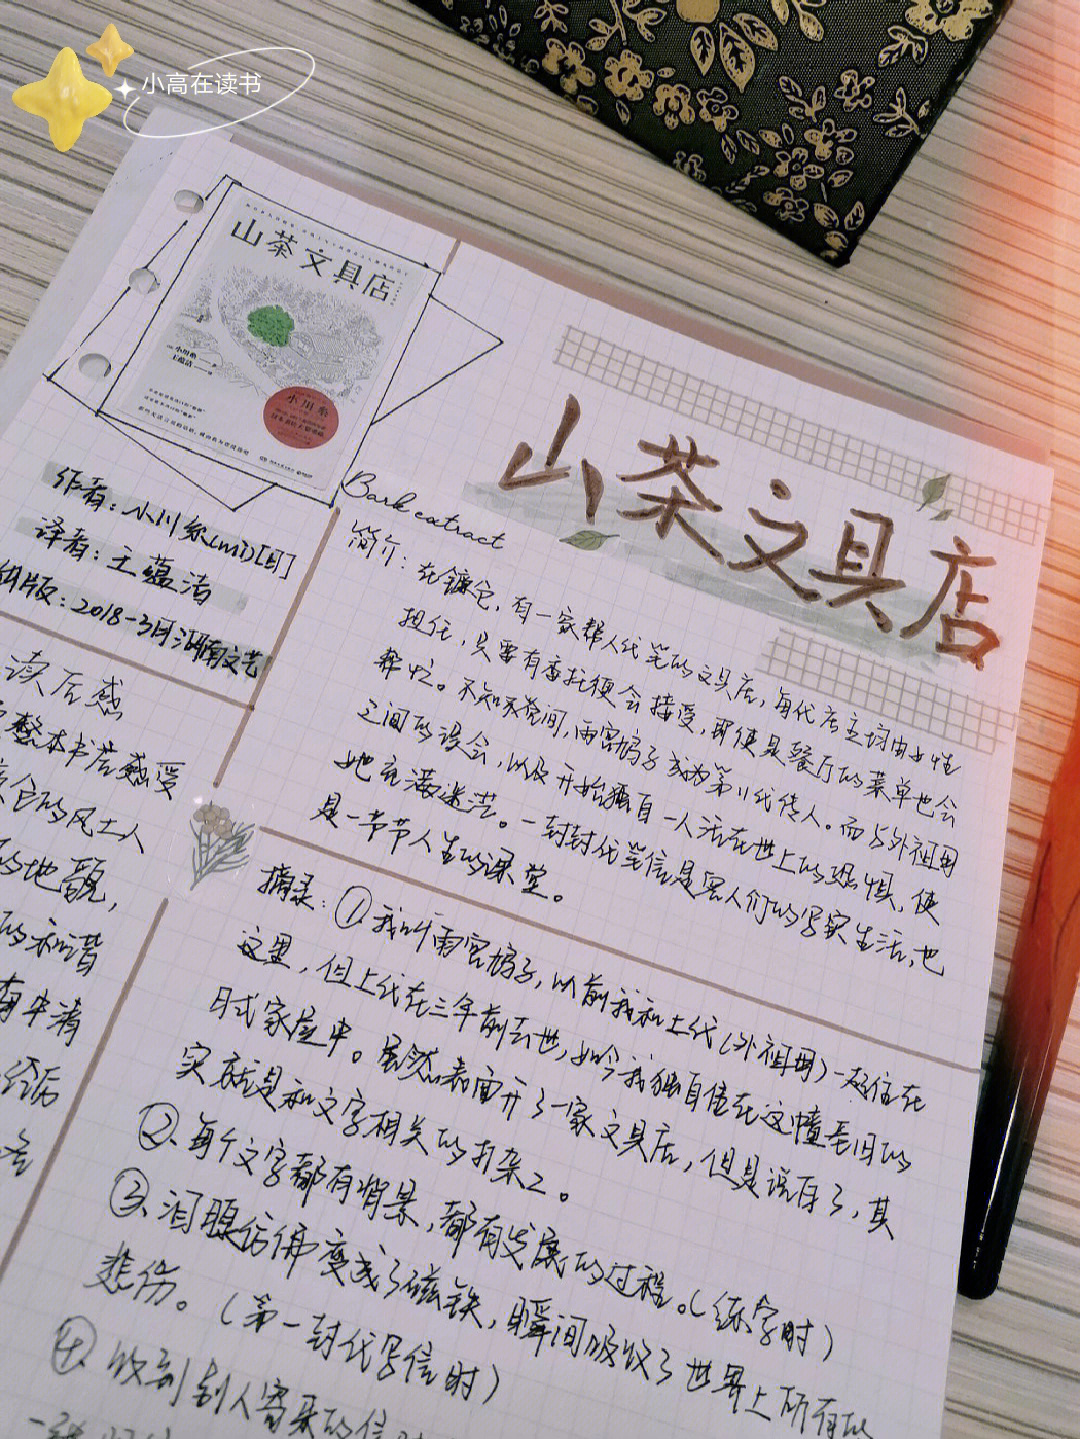 小高在读书
山茶文具店
小川糸
王蕴洁
小川糸
山茶文具店
作者：小川糸(mi)[日]
译者：王蕴洁
出版：2018-3月湖南文艺
Bark extract
简介：在镰仓，有一家帮人代笔的文具店，每代店主均由女性
担任，只要有委托便会接受，即使是餐厅的菜单也会
帮忙。不知不觉间，雨宫鸠子成为第11代传人。而与外祖母
之间的误会，以及开始独自一人活在世上的恐惧，使
她充满迷茫。一封封代笔信是客人们的写实生活，也
是一节节人生的课堂。
读后感
整本书荐感受
仓的风土人
的地貌，
的和谐
有中清
经历
摘录：①我叫雨宫鸠子，以前我和上代(外祖母)一起住在
这里，但上代在三年前去世，如今我独自住在这幢老旧的
日式家屋中。虽然表面开了一家文具店，但是说白了，其
实就是和文字相关的打杂工。
②、每个文字都有背景，都有发展的过程。(练字时)
③、泪腺仿佛变成了磁铁，瞬间吸收了世界上所有的
悲伤。(第一封代写信时)
④、收到别人寄来的信